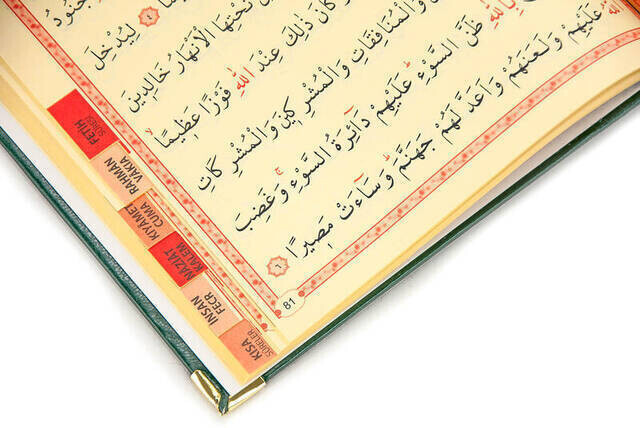 جُنُودُ
٤ لِيُدْخِلَ
تَحْتِهَا الْاَنْهَارُ خَالِدٖينَ
كَانَ ذٰلِكَ عِنْدَ اللّٰهِ فَوْزًا عَظٖيمًا
وَالْمُنَافِقَاتِ وَالْمُشْرِكٖينَ وَالْمُشْرِكَاتِ
بِاللّٰهِ ظَنَّ السَّوْءِ عَلَيْهِمْ دَٓائِرَةُ السَّوْءِ وَغَضِبَ
عَلَيْهِمْ وَلَعَنَهُمْ وَاَعَدَّ لَهُمْ جَهَنَّمَ وَسَٓاءَتْ مَصٖيرًا ٦
81
FETİH
SURESİ
RAHMAN
VAKIA
KIYAMET
CUMA
NAZİAT
KALEM
İNSAN
FECR
KISA
SURELER